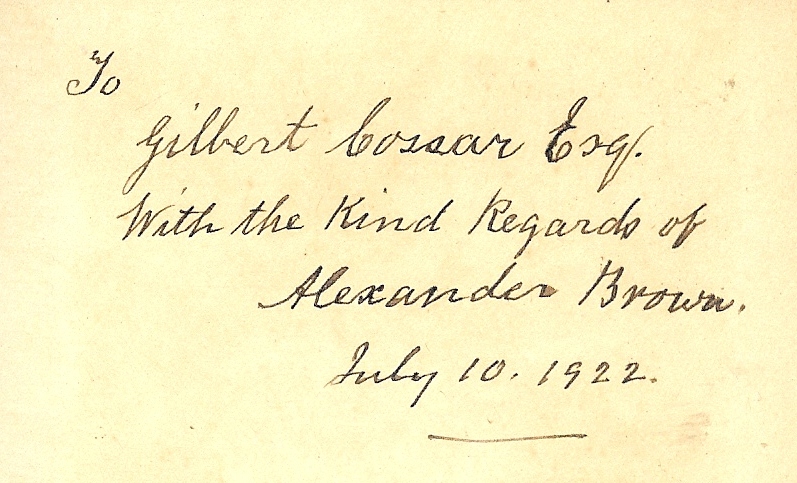 To
Gilbert Cossar Esq.
With the Kind Regards of
Alexander Brown.
July 10. 1922.